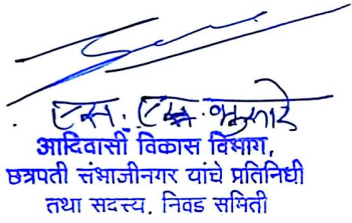 एस. एम. भुमरे
आदिवासी विकास विभाग,
छत्रपती संभाजीनगर यांचे प्रतिनिधी
तथा सदस्य, निवड समिती